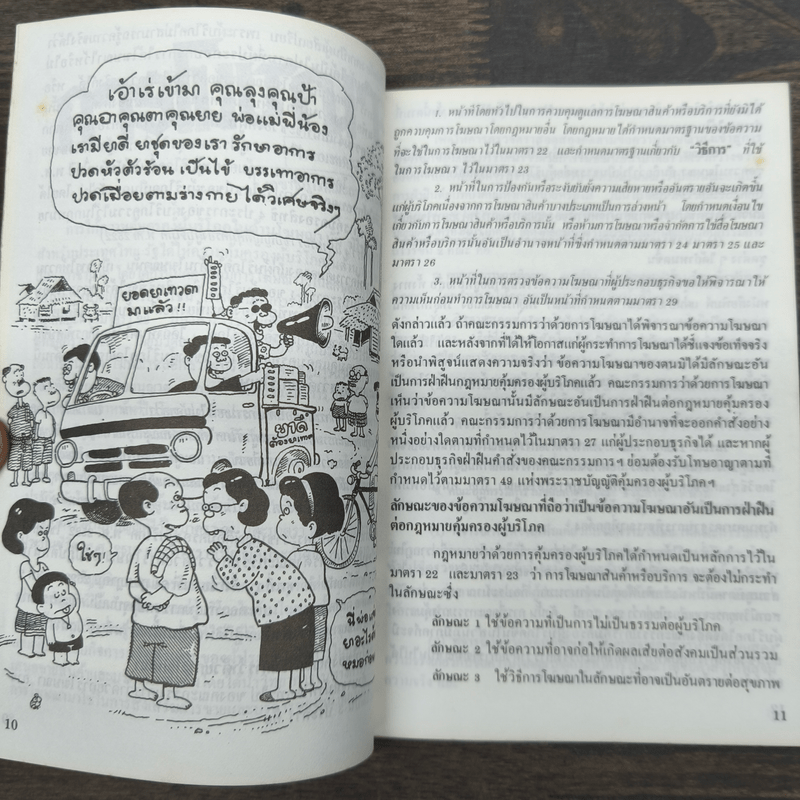 เอ้าเร่เข้ามา คุณลุงคุณป้า
คุณอาคุณตาคุณยาย พ่อแม่พี่น้อง
เรามียาดี ยาชุดของเรา รักษาอาการ
ปวดหัวตัวร้อน เป็นไข้ บรรเทาอาการ
ปวดเมื่อยตามร่างกายได้วิเศษจริงๆ
ยอดยาเทวดา
มาแล้ว!!
ยาดี
ต้องยาเทวดา
ใช่ๆ!
10
1. หน้าที่โดยทั่วไปในการควบคุมดูแลการโฆษณาสินค้าหรือบริการที่ยังมิได้
ถูกควบคุมการโฆษณาโดยกฎหมายอื่น โดยกฎหมายได้กำหนดมาตรฐานของข้อความ
ที่จะใช้ในการโฆษณาไว้ในมาตรา 22 และกำหนดมาตรฐานเกี่ยวกับ "วิธีการ" ที่ใช้
ในการโฆษณา ไว้ในมาตรา 23
2. หน้าที่ในการป้องกันหรือระงับยับยั้งความเสียหายหรืออันตรายอันจะเกิดขึ้น
แก่ผู้บริโภคเนื่องจากการโฆษณาสินค้าบางประเภทเป็นการล่วงหน้า โดยกำหนดเงื่อนไข
เกี่ยวกับการโฆษณาสินค้าหรือบริการนั้น หรือห้ามการโฆษณาหรือจำกัดการใช้สื่อโฆษณา
สินค้าหรือบริการนั้นอันเป็นอำนาจหน้าที่ซึ่งกำหนดตามมาตรา 24 มาตรา 25 และ
มาตรา 26
3. หน้าที่ในการตรวจข้อความโฆษณาที่ผู้ประกอบธุรกิจขอให้พิจารณาให้
ความเห็นก่อนทำการโฆษณา อันเป็นหน้าที่กำหนดตามมาตรา 29
ดังกล่าวแล้ว ถ้าคณะกรรมการว่าด้วยการโฆษณาได้พิจารณาข้อความโฆษณา
ใดแล้ว และหลังจากที่ได้ให้โอกาสแก่ผู้กระทำการโฆษณาได้ชี้แจงข้อเท็จจริง
หรือนำพิสูจน์แสดงความจริงว่า ข้อความโฆษณาของตนมิได้มีลักษณะอัน
เป็นการฝ่าฝืนกฎหมายคุ้มครองผู้บริโภคแล้ว คณะกรรมการว่าด้วยการโฆษณา
เห็นว่าข้อความโฆษณานั้นมีลักษณะอันเป็นการฝ่าฝืนต่อกฎหมายคุ้มครอง
ผู้บริโภคแล้ว คณะกรรมการว่าด้วยการโฆษณามีอำนาจที่จะออกคำสั่งอย่าง
หนึ่งอย่างใดตามที่กำหนดไว้ในมาตรา 27 แก่ผู้ประกอบธุรกิจได้ และหากผู้
ประกอบธุรกิจฝ่าฝืนคำสั่งของคณะกรรมการฯ ย่อมต้องรับโทษอาญาตามที่
กำหนดไว้ตามมาตรา 49 แห่งพระราชบัญญัติคุ้มครองผู้บริโภคฯ
ลักษณะของข้อความโฆษณาที่ถือว่าเป็นข้อความโฆษณาอันเป็นการฝ่าฝืน
ต่อกฎหมายคุ้มครองผู้บริโภค
กฎหมายว่าด้วยการคุ้มครองผู้บริโภคได้กำหนดเป็นหลักการไว้ใน
มาตรา 22 และมาตรา 23 ว่า การโฆษณาสินค้าหรือบริการ จะต้องไม่กระทำ
ในลักษณะซึ่ง
ลักษณะ 1 ใช้ข้อความที่เป็นการไม่เป็นธรรมต่อผู้บริโภค
ลักษณะ 2 ใช้ข้อความที่อาจก่อให้เกิดผลเสียต่อสังคมเป็นส่วนรวม
ลักษณะ 3 ใช้วิธีการโฆษณาในลักษณะที่อาจเป็นอันตรายต่อสุขภาพ
11